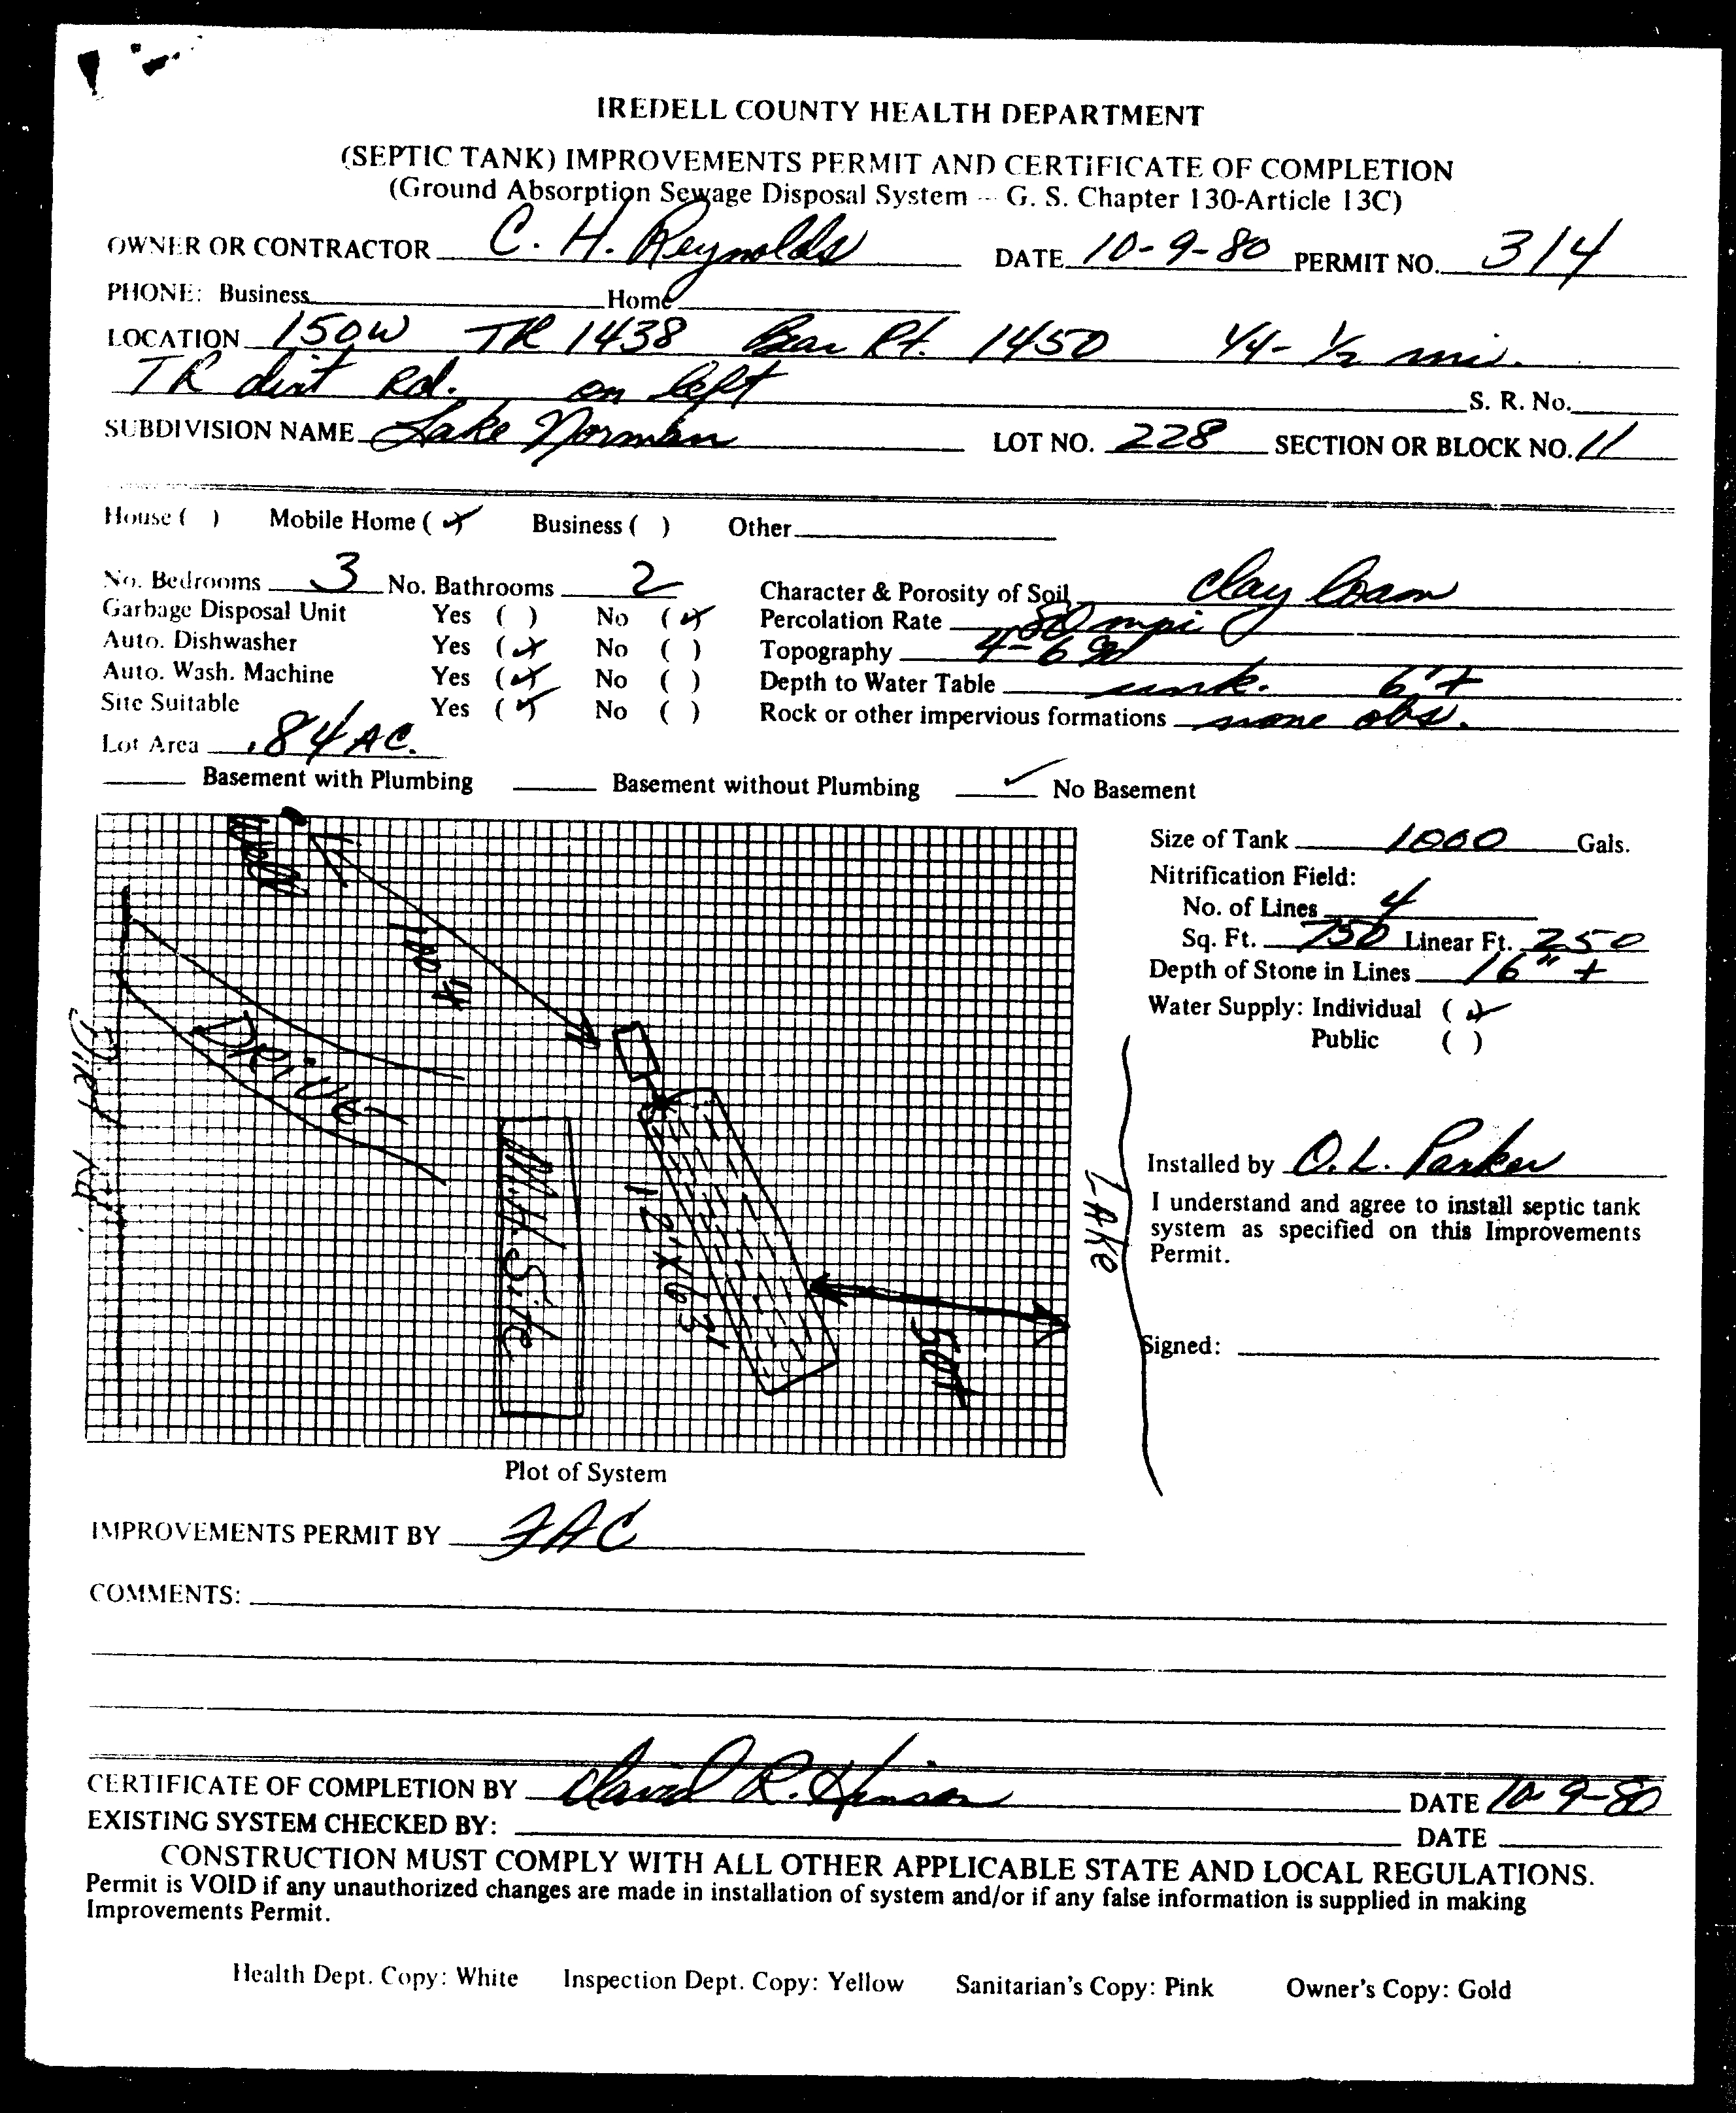 IREDELL COUNTY HEALTH DEPARTMENT
(SEPTIC TANK) IMPROVEMENTS PERMIT AND CERTIFICATE OF COMPLETION
(Ground Absorption Sewage Disposal System -- G. S. Chapter 130-Article 13C)
OWNER OR CONTRACTOR C. H. Reynolds DATE 10-9-80 PERMIT NO. 314
PHONE: Business Home
LOCATION 150W TR 1438 Bear Rt. 1450 1/4-1/2 mi.
TR dirt Rd. on left S. R. No.
SUBDIVISION NAME Lake Norman LOT NO. 228 SECTION OR BLOCK NO. 11
House ( ) Mobile Home (✓) Business ( ) Other
No. Bedrooms 3 No. Bathrooms 2 Character & Porosity of Soil clay loam
Garbage Disposal Unit Yes ( ) No (✓) Percolation Rate mpi
Auto. Dishwasher Yes (✓) No ( ) Topography 4-6
Auto. Wash. Machine Yes (✓) No ( ) Depth to Water Table unk. 6'+
Site Suitable Yes (✓) No ( ) Rock or other impervious formations none obs.
Lot Area .84 AC.
Basement with Plumbing Basement without Plumbing ✓ No Basement
Well
100'+
Drive
Dirt Rd.
M.H. Site
12'x63'
50+
Lake
Size of Tank 1000 Gals.
Nitrification Field:
No. of Lines 4
Sq. Ft. 750 Linear Ft. 250
Depth of Stone in Lines 16" +
Water Supply: Individual (✓)
Public ( )
Installed by O.L. Parker
I understand and agree to install septic tank
system as specified on this Improvements
Permit.
Signed:
Plot of System
IMPROVEMENTS PERMIT BY FAC
COMMENTS:
CERTIFICATE OF COMPLETION BY David R. Hinson DATE 10-9-80
EXISTING SYSTEM CHECKED BY: DATE
CONSTRUCTION MUST COMPLY WITH ALL OTHER APPLICABLE STATE AND LOCAL REGULATIONS.
Permit is VOID if any unauthorized changes are made in installation of system and/or if any false information is supplied in making
Improvements Permit.
Health Dept. Copy: White Inspection Dept. Copy: Yellow Sanitarian's Copy: Pink Owner's Copy: Gold